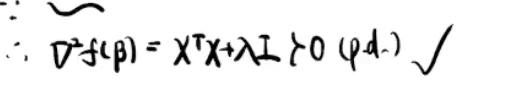 ∴ ∇²f(β) = XᵀX+λI ≻0 (p.d.) ✓